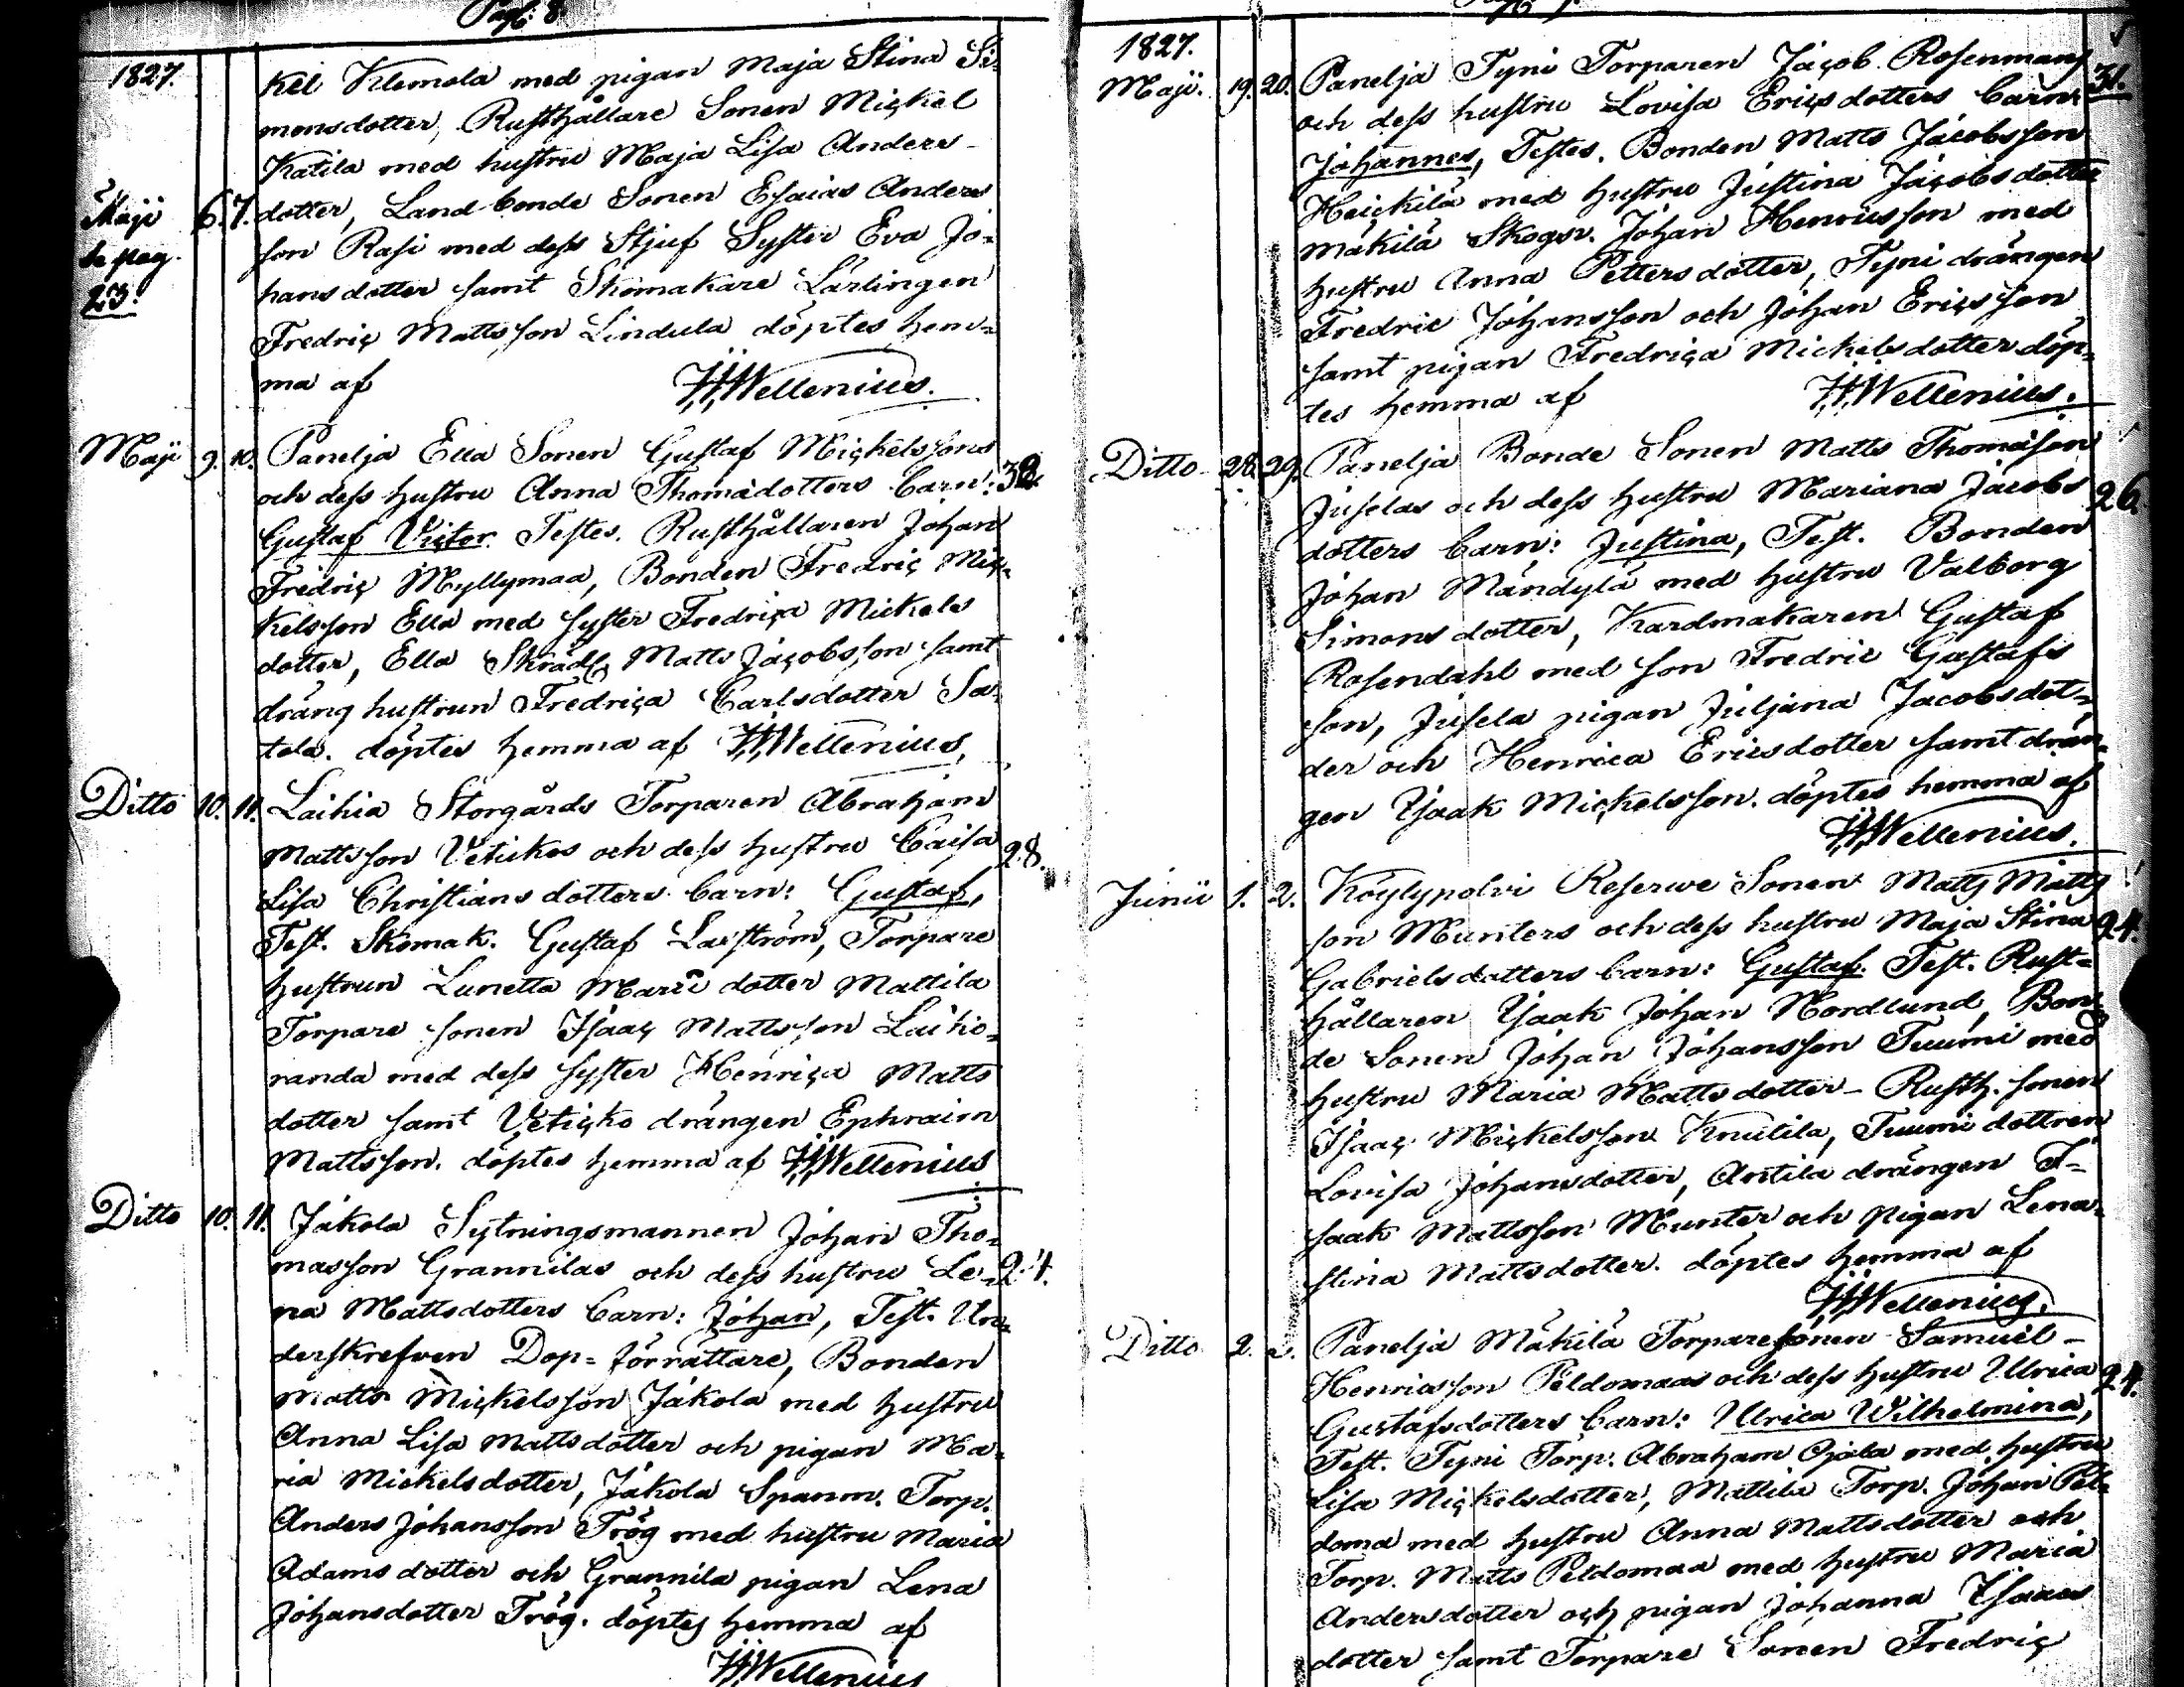 Pag: 8
1827.
kel Klemola med pigan Maja Stina Si-
monsdotter, Rusthållare Sonen Mickel
Katila med hustru Maja Lisa Anders-
Maji 6. 7. dotter, Land-bonde Sonen Esaias Anders
se pag. son Rasi med dess Stjuf Syster Eva Jo-
23. hansdotter samt Skomakare Lärlingen
Fredric Mattsson Lindula döptes hem-
ma af HWellenius.
Maji 9. 10. Panelja Ella Sonen Gustaf Mickelssons
och dess hustru Anna Thomædotters barn:
Gustaf Victor. Testes. Rusthållaren Johan
Fredric Myllymaa, Bonden Fredric Mic-
kelsson Ella med syster Fredrica Mickels
dotter, Ella Skrädd. Matts Jacobsson samt
dräng hustrun Fredrica Carlsdotter Sa-
tola. döptes hemma af HWellenius.
Ditto 10. 11. Laihia Storgårds Torparen Abraham
Mattsson Vetickos och dess hustru Caisa 28.
Lisa Christiansdotters barn: Gustaf,
Test. Skomak. Gustaf Laxström, Torpare
hustrun Lunetta Mariædotter Mattila
Torpare sonen Isaac Mattsson Laiho-
randa med dess syster Henrica Matts
dotter samt Veticko drängen Ephraim
Mattsson. döptes hemma af HWellenius
Ditto 10. 11. Jakola Sytningsmannen Johan Tho-
masson Grannilas och dess hustru Le- 24.
na Mattsdotters barn: Johan, Test. Un-
derskrefven Dop-förrättare, Bonden
Matts Mickelsson Jakola med hustru
Anna Lisa Mattsdotter och pigan Ma-
ria Mickelsdotter, Jakola Spanm. Torp.
Anders Johansson Trög med hustru Maria
Adamsdotter och Grannila pigan Lena
Johansdotter Trög. döptes hemma af
HWellenius
1827.
Maji. 19. 20. Panelja Tyni Torparen Jacob Rosenmans 31.
och dess hustru Lovisa Ericsdotters barn
Johannes, Testes. Bonden Matts Jacobsson
Heickilä med hustru Justina Jacobsdotter
Mäkilä Skogsv. Johan Henricsson med
hustru Anna Pettersdotter, Tyni drängen
Fredric Johansson och Johan Ericsson
samt pigan Fredrica Mickelsdotter döp-
tes hemma af HWellenius.
Ditto 28. 29. Panelja Bonde Sonen Matts Thomasson
Juselas och dess hustru Mariana Jacobs 26.
dotters barn: Justina, Test. Bonden
Johan Mändylä med hustru Valborg
Simonsdotter, Kardmakaren Gustaf
Rosendahl med son Fredric Gustafs
son, Jusela pigan Juljana Jacobsdot-
der och Henrica Ericsdotter samt drän-
gen Isaak Mickelsson. döptes hemma af
HWellenius.
Junii 1. 2. Köylypolvi Reserwe Sonen Matts Matts
son Munters och dess hustru Maja Stina 24.
Gabrielsdotters barn: Gustaf. Test. Rust-
hållaren Isaak Johan Nordlund, Bon-
de Sonen Johan Johansson Tuumi med
hustru Maria Mattsdotter - Rusth. sonen
Isaac Mickelsson Knutila, Tuumi dottren
Lovisa Johansdotter, Antila drängen I-
saak Mattsson Munter och pigan Lena
stina Mattsdotter. döptes hemma af
HWellenius.
Ditto 2. Panelja Mäkilä Torparesonen Samuel
Henricsson Peldomaas och dess hustru Ulrica 24.
Gustafsdotters barn: Ulrica Wilhelmina,
Test. Tyni Torp. Abraham Ojala med hustru
Lisa Mickelsdotter, Mattila Torp. Johan Pel-
doma med hustru Anna Mattsdotter och
Torp. Matts Peldomaa med hustru Maria
Andersdotter och pigan Johanna Isaacs
dotter samt Torpare Sonen Fredric